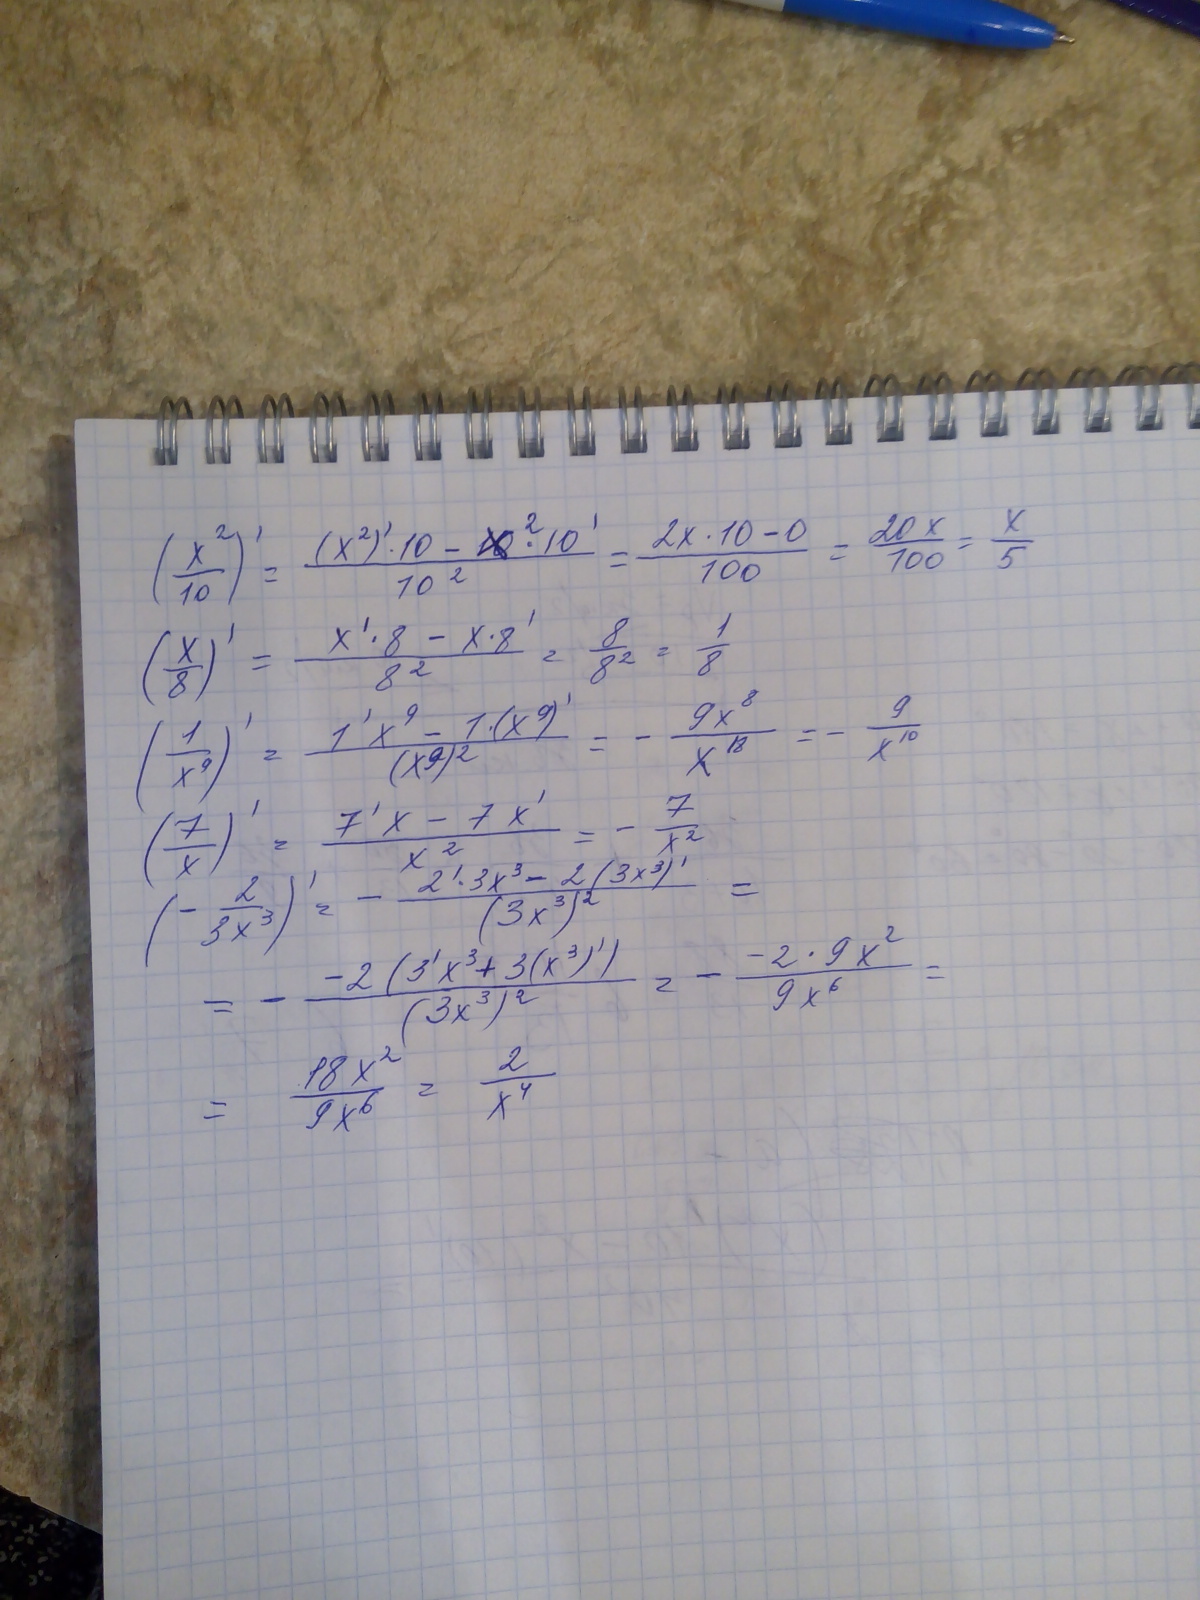 (x²/10)' = ((x²)'·10 − x²·10')/10² = (2x·10−0)/100 = 20x/100 = x/5
(x/8)' = (x'·8 − x·8')/8² = 8/8² = 1/8
(1/x⁹)' = (1'x⁹ − 1·(x⁹)')/(x⁹)² = − 9x⁸/x¹⁸ = − 9/x¹⁰
(7/x)' = (7'x − 7x')/x² = − 7/x²
(− 2/3x³)' = − (2'·3x³ − 2(3x³)')/(3x³)² =
= − (−2(3'x³+3(x³)'))/(3x³)² = − (−2·9x²)/9x⁶ =
= 18x²/9x⁶ = 2/x⁴